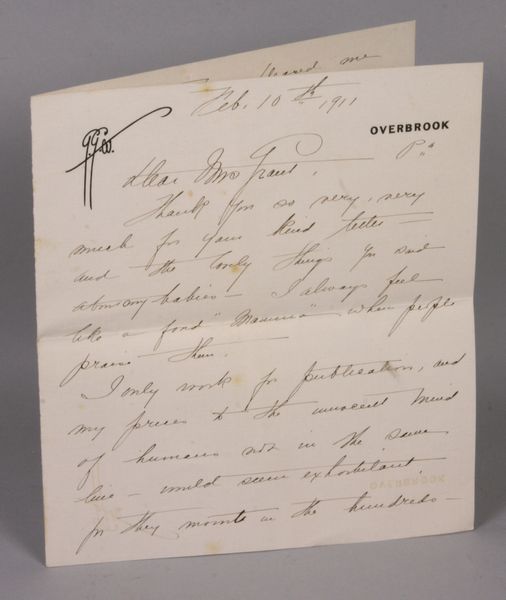 pleased me
Feb. 10th 1911
G.G.W.
OVERBROOK
Pa
Dear Mrs Grant,
Thank you so very, very
much for your kind letter—
and the lovely things you said
about my babies— I always feel
like a fond "Mamma" when people
praise them.
I only work for publication, and
my prices to the innocent mind
of humans not in the same
line— would seem exhorbitant,
for they mount in the hundreds—